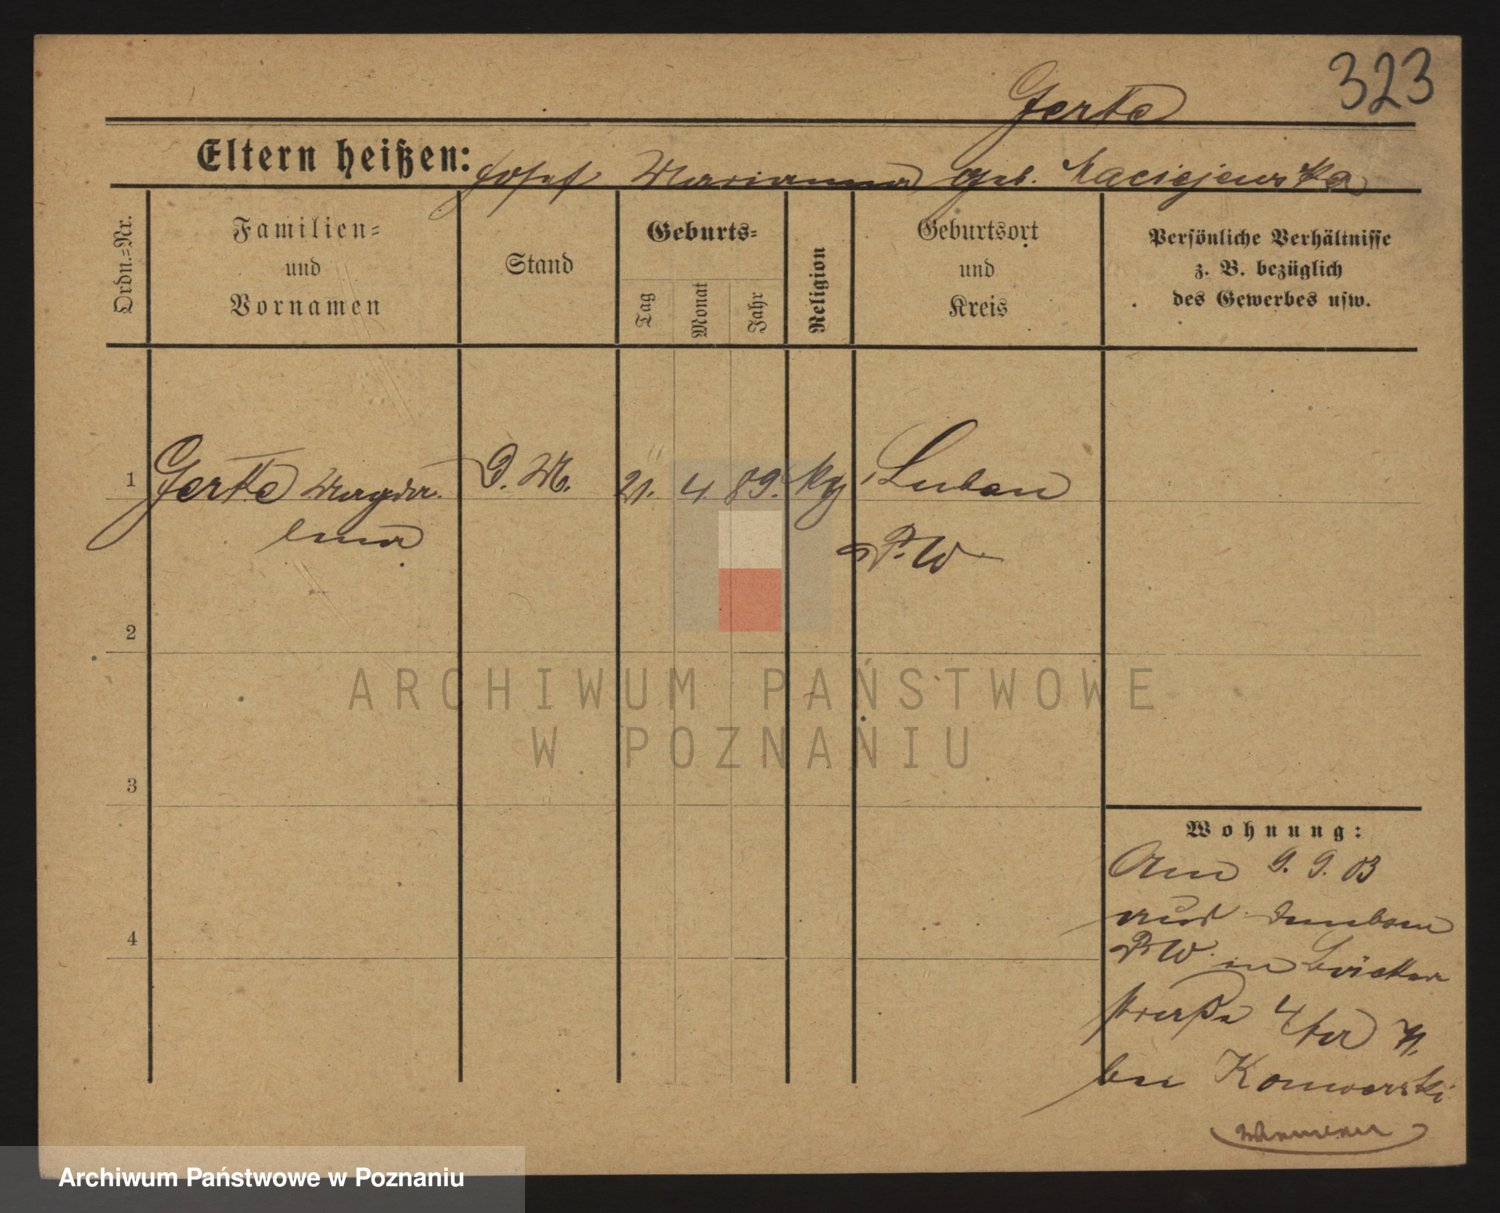 323
Gertte
Eltern heißen: Josef Marianna geb. Maciejewska
Ordn.-Nr.
Familien-
und
Vornamen
Stand
Geburts-
Tag
Monat
Jahr
Religion
Geburtsort
und
Kreis
Persönliche Verhältnisse
z. B. bezüglich
des Gewerbes usw.
1 Gertte Magda-
lena
D. M.
21. 4 89.
Luban
P. W
2
3
4
Wohnung:
Am 9. 9. 03
aus
P. W. in
straße 4
bei Komorski
ARCHIWUM PAŃSTWOWE
W POZNANIU
Archiwum Państwowe w Poznaniu